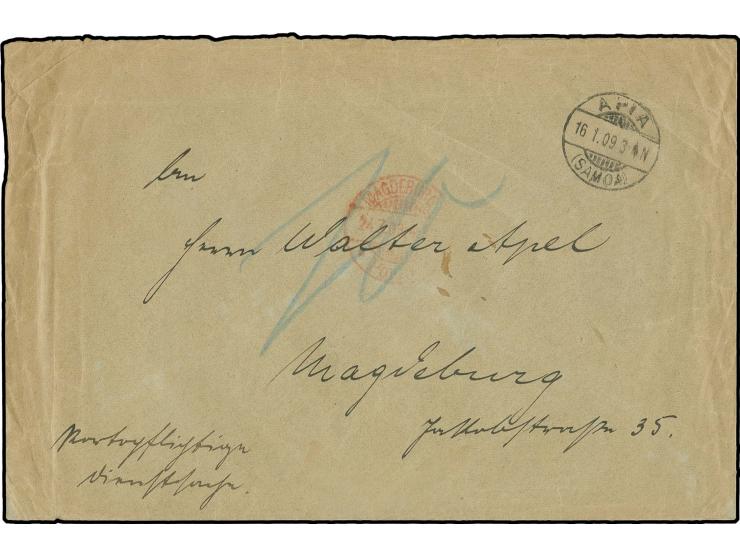 APIA
16 1.09 3-4N
(SAMOA)
An
Herrn Walter Apel
MAGDEBURG
Magdeburg
Jakobstraße 35.
Portopflichtige
Dienstsache.